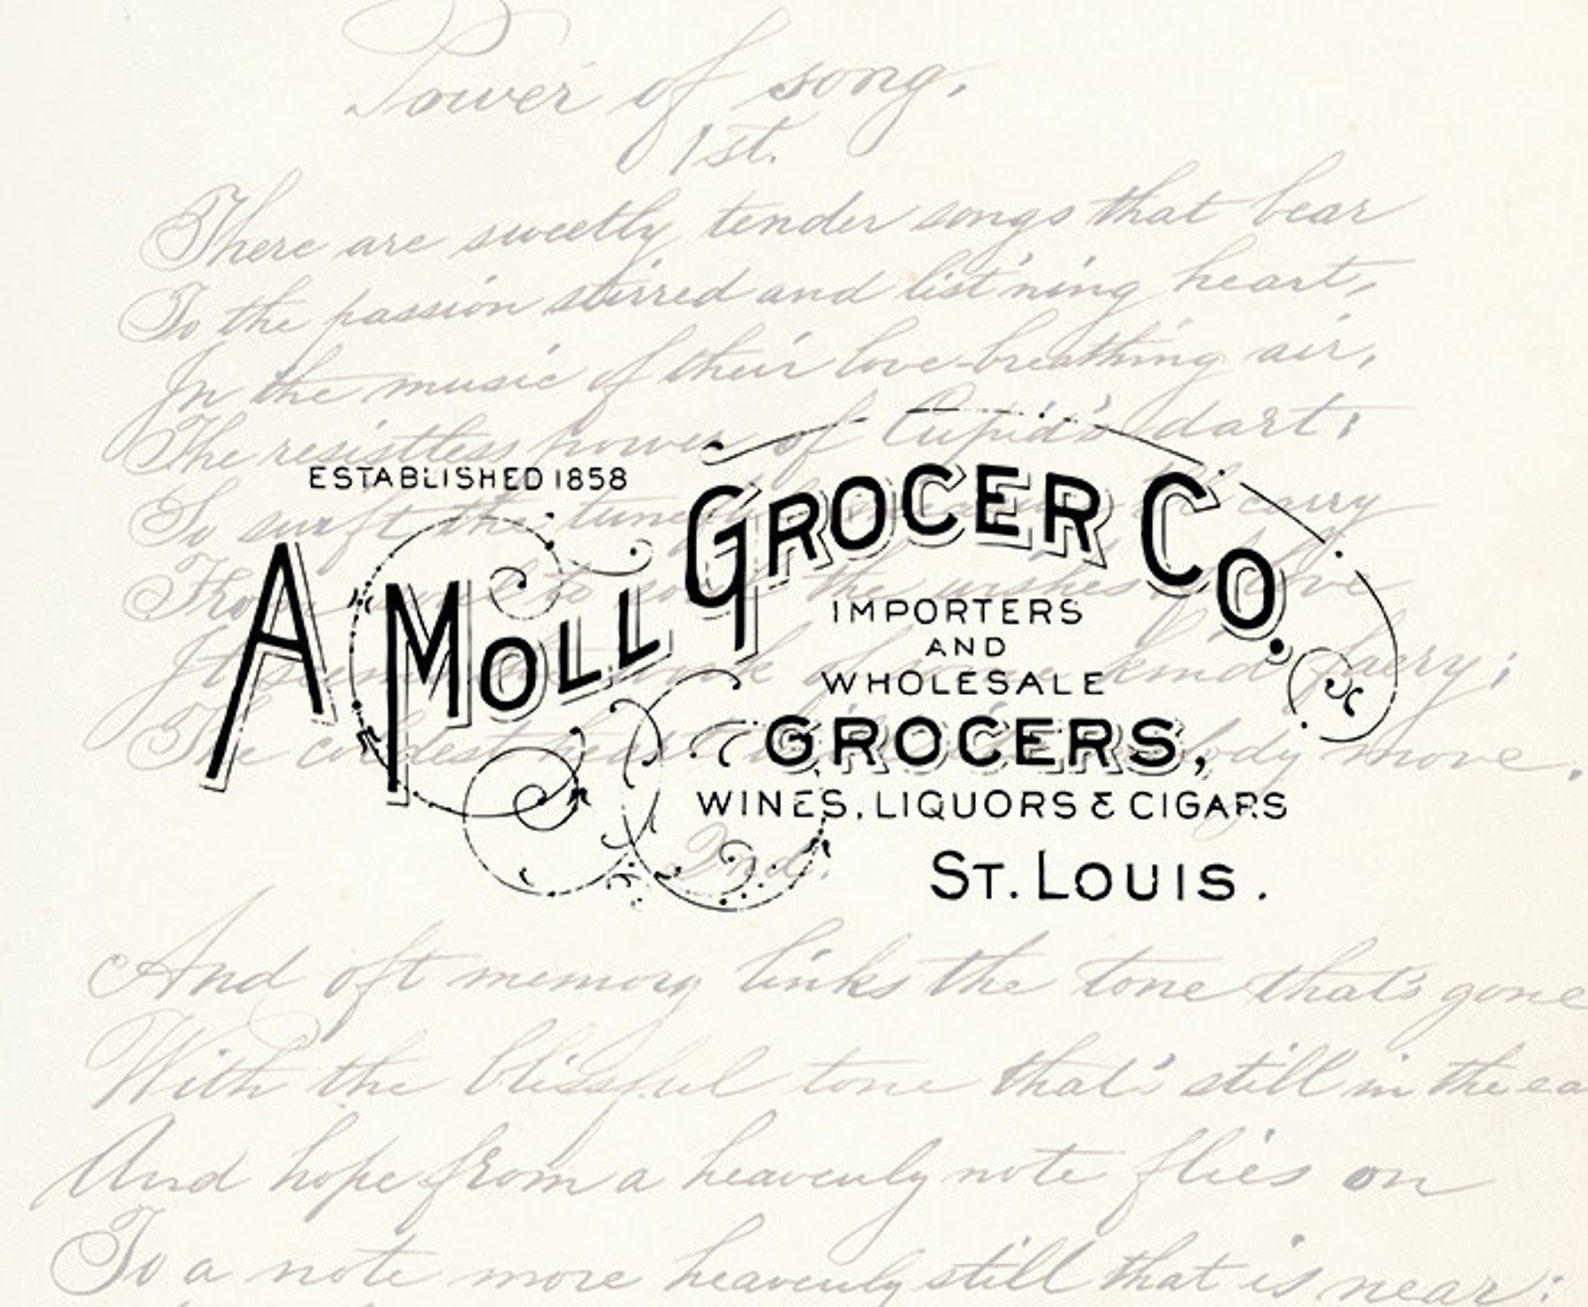 Power of song.
1st.
There are sweetly tender songs that bear
To the passion stirred and list'ning heart,
In the music of their love-breathing air,
The resistless power of Cupid's dart;
ESTABLISHED 1858
A MOLL GROCER CO.
IMPORTERS
AND
WHOLESALE
GROCERS,
WINES, LIQUORS & CIGARS
ST. LOUIS.
So swift the tune carry
to the wishes love
of some kind faery;
The coldest body move.
2nd.
And oft memory links the tone that's gone
With the blissful tone that's still in the
And hope from a heavenly note flies on
To a note more heavenly still that is near: